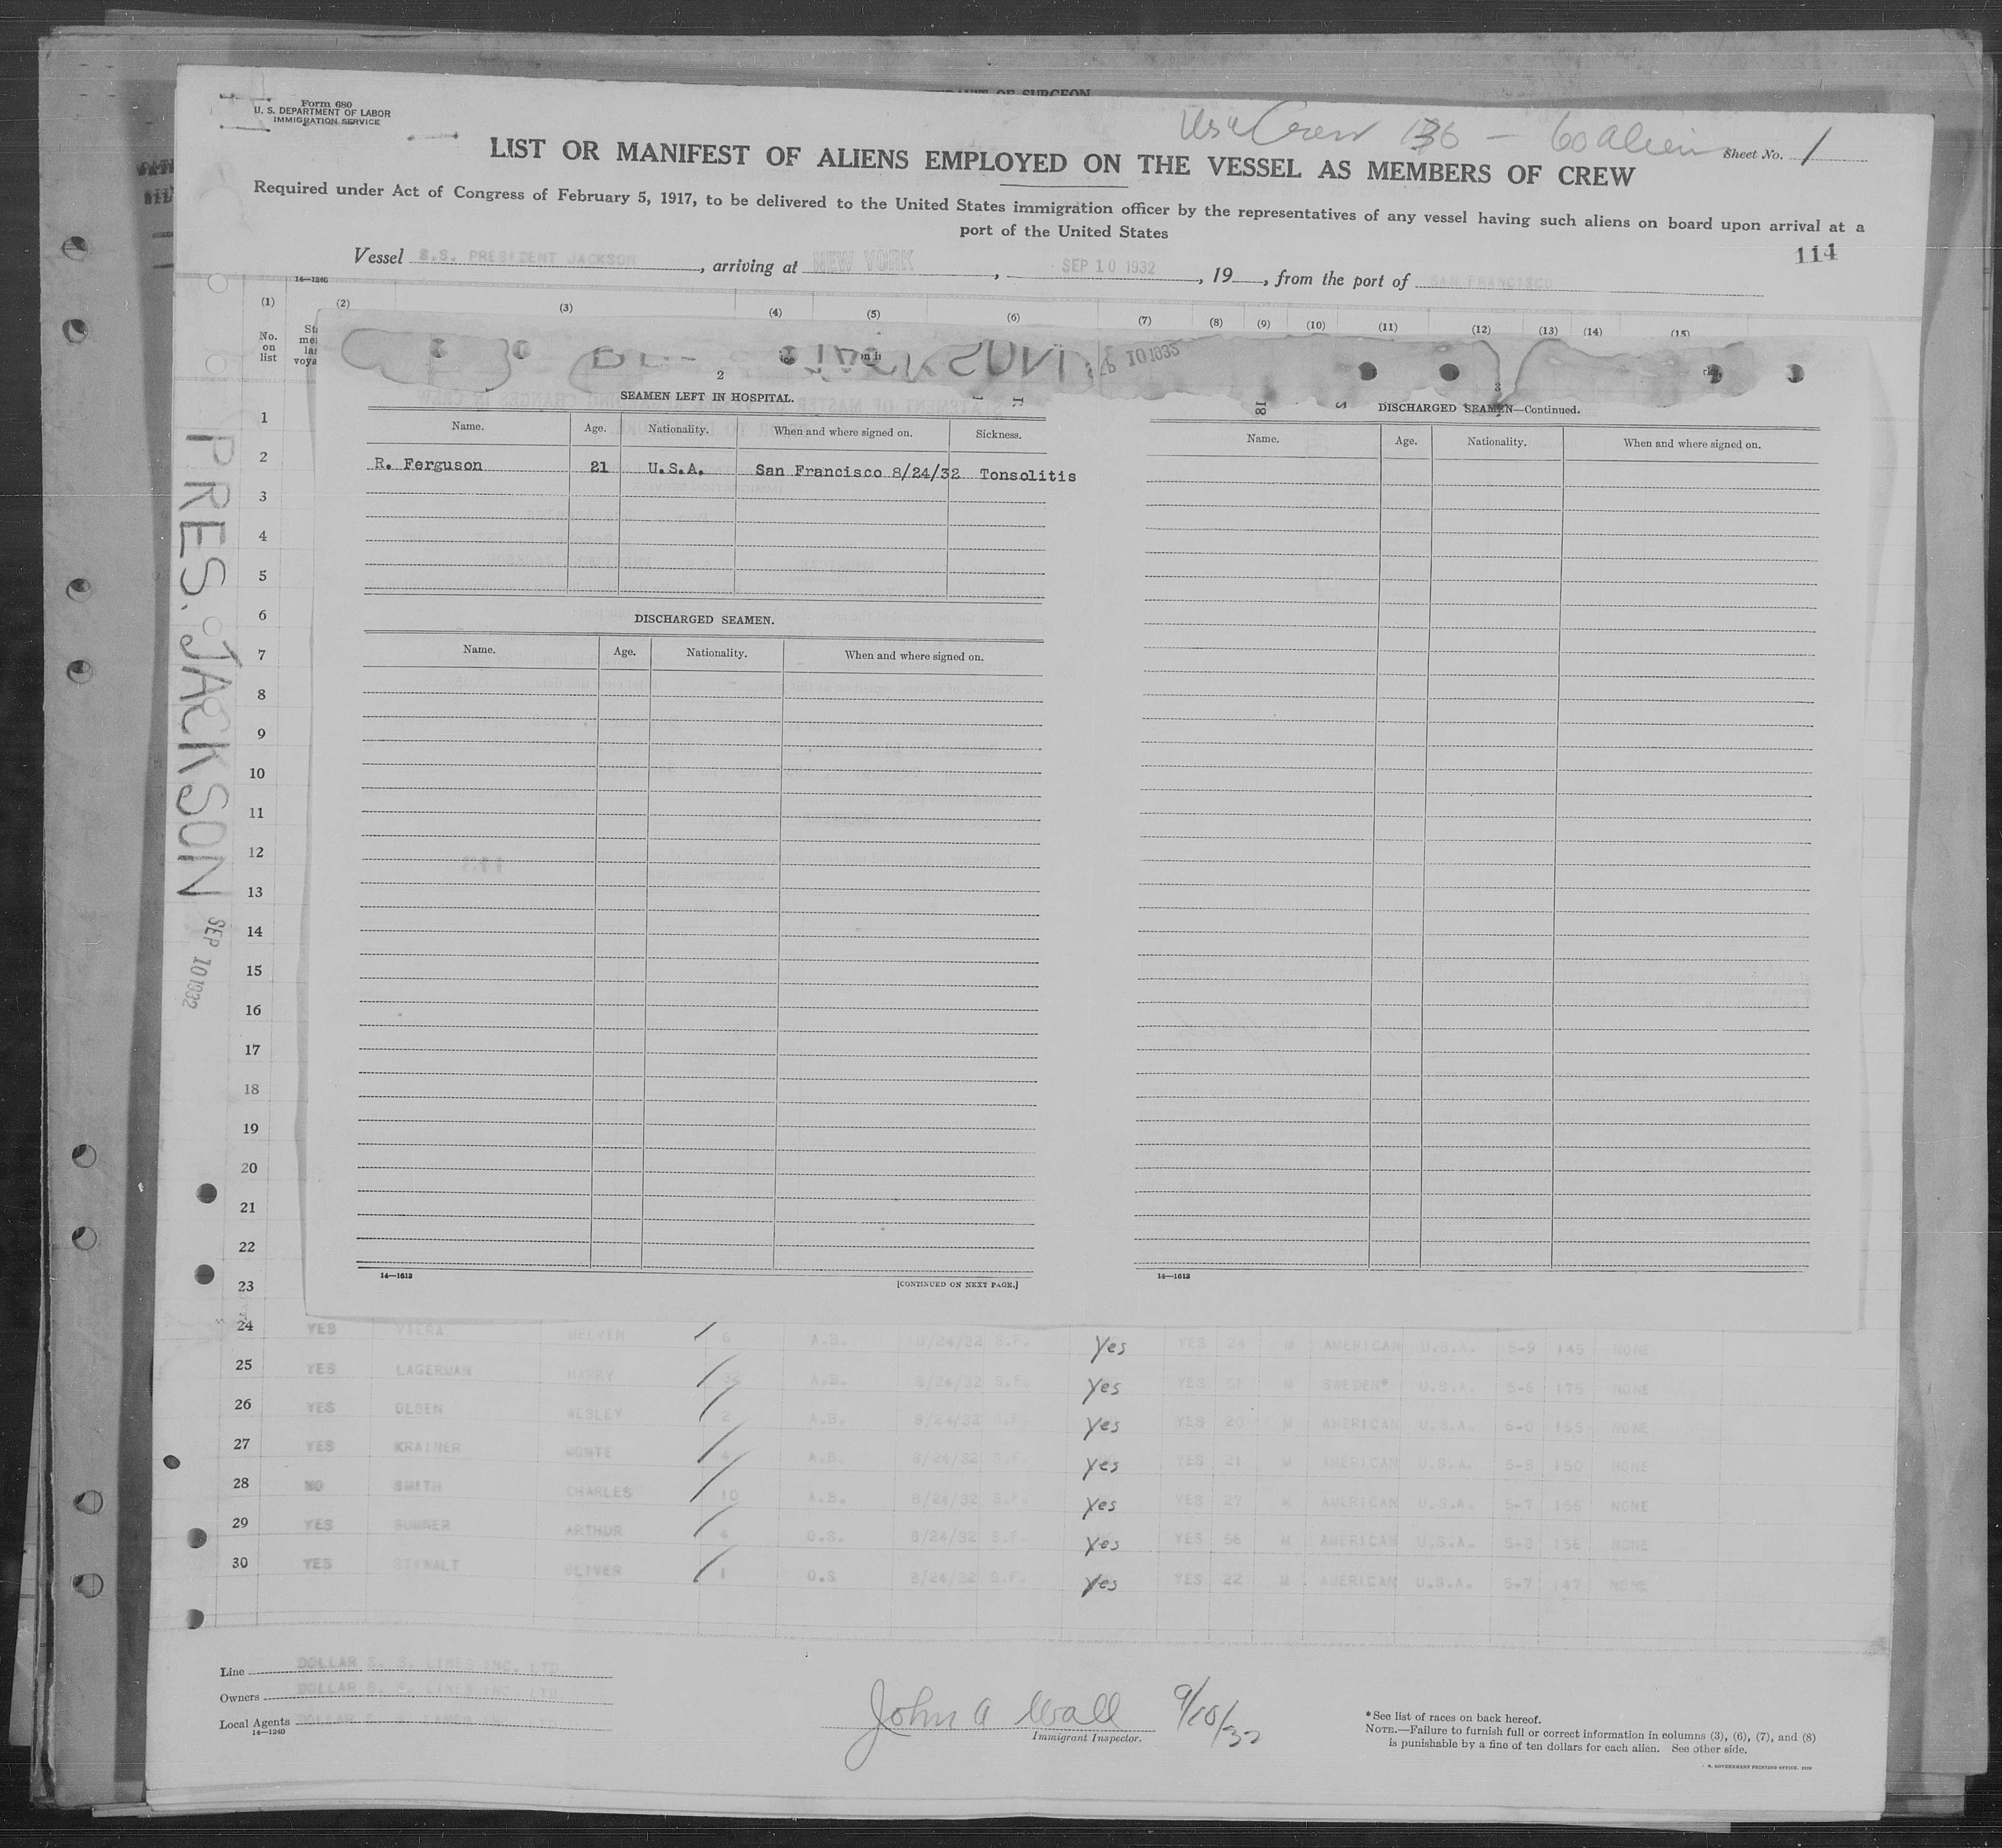 Form 680
U. S. DEPARTMENT OF LABOR
IMMIGRATION SERVICE
Crew 136 — 60 alien
Sheet No. 1
LIST OR MANIFEST OF ALIENS EMPLOYED ON THE VESSEL AS MEMBERS OF CREW
Required under Act of Congress of February 5, 1917, to be delivered to the United States immigration officer by the representatives of any vessel having such aliens on board upon arrival at a
port of the United States
114
Vessel S.S. PRESIDENT JACKSON, arriving at NEW YORK, SEP 10 1932, 19, from the port of SAN FRANCISCO
14—1240
(1) (2) (3) (4) (5) (6) (7) (8) (9) (10) (11) (12) (13) (14) (15)
No. on list
2
3
SEAMEN LEFT IN HOSPITAL.
Name. Age. Nationality. When and where signed on. Sickness.
R. Ferguson 21 U.S.A. San Francisco 8/24/32 Tonsolitis
DISCHARGED SEAMEN.
Name. Age. Nationality. When and where signed on.
14—1613
[CONTINUED ON NEXT PAGE.]
DISCHARGED SEAMEN—Continued.
Name. Age. Nationality. When and where signed on.
14—1613
PRES. JACKSON
SEP 10 1932
1
2
3
4
5
6
7
8
9
10
11
12
13
14
15
16
17
18
19
20
21
22
23
24 YES VIERA MELVIN 6 A.B. 8/24/32 S.F. Yes YES 24 M AMERICAN U.S.A. 5-9 145 NONE
25 YES LAGERMAN HARRY 32 A.B. 8/24/32 S.F. Yes YES 51 M SWEDEN* U.S.A. 5-6 175 NONE
26 YES OLSEN WESLEY 2 A.B. 8/24/32 S.F. Yes YES 20 M AMERICAN U.S.A. 6-0 165 NONE
27 YES KRAINER MONTE 4 A.B. 8/24/32 S.F. Yes YES 21 M AMERICAN U.S.A. 5-8 150 NONE
28 NO SMITH CHARLES 10 A.B. 8/24/32 S.F. Yes YES 27 M AMERICAN U.S.A. 5-7 NONE
29 YES SUMNER ARTHUR 4 O.S. 8/24/32 S.F. Yes YES 56 M AMERICAN U.S.A. 5-8 NONE
30 YES STEWALT OLIVER 1 O.S 8/24/32 S.F. Yes YES 22 M AMERICAN U.S.A. 5-7 147 NONE
Line DOLLAR S. S. LINES INC. LTD.
Owners DOLLAR S. S. LINES INC. LTD.
Local Agents DOLLAR S. S. LINES INC. LTD.
14—1240
John A Wall 9/10/32
Immigrant Inspector.
*See list of races on back hereof.
NOTE.—Failure to furnish full or correct information in columns (3), (6), (7), and (8)
is punishable by a fine of ten dollars for each alien. See other side.